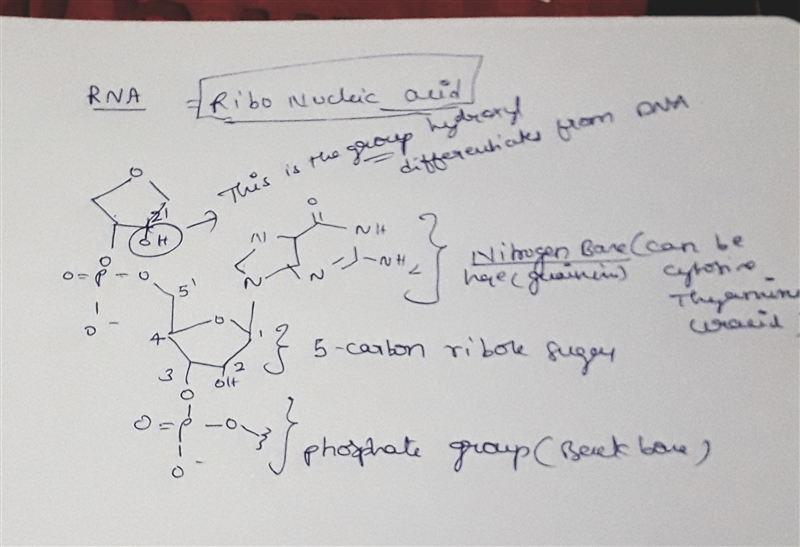 RNA = Ribo Nucleic acid
This is the group hydroxyl
differentiates from DNA
O
2'
OH
O
O = P - O
O -
5'
O
N
NH
N
N
NH2
Nitrogen Base (can be
here (guainin) cytosine
Thyamine
uracid)
4
O
1
3
2
OH
5-carbon ribose sugar
O
O = P - O
O -
phosphate group (Back bone)